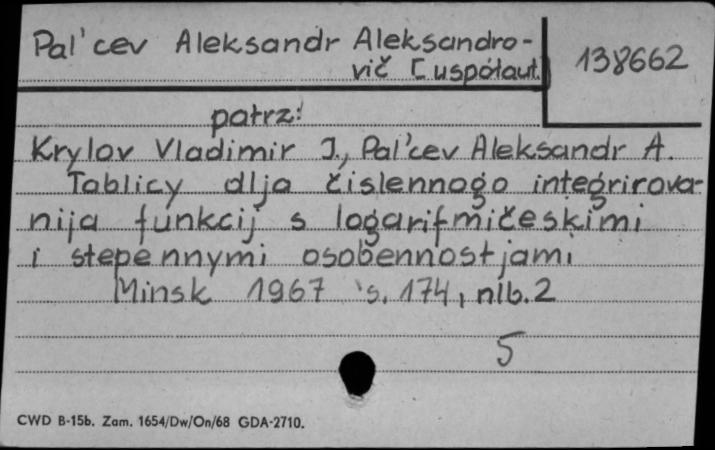 Pal'cev Aleksandr Aleksandro-
vič [uspółaut.]
138662
patrz:
Krylov Vladimir J., Pal'cev Aleksandr A.
Tablicy dlja čislennogo integrirova-
nija funkcij s logarifmičeskimi
i stepennymi osobennostjami
Minsk 1967 s. 174, nlb. 2
5
CWD B-15b. Zam. 1654/Dw/On/68 GDA-2710.